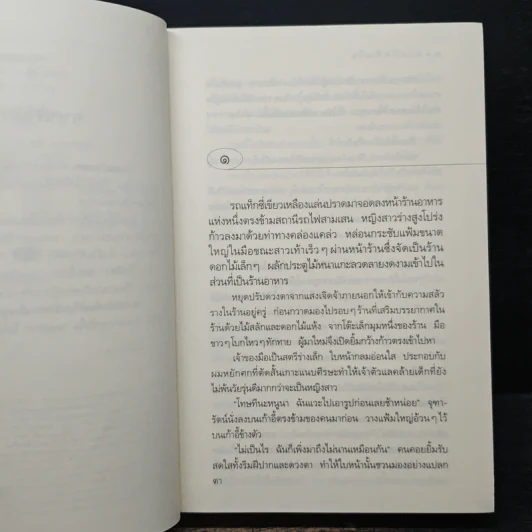 ๑
รถแท็กซี่เขียวเหลืองแล่นปราดมาจอดลงหน้าร้านอาหาร
แห่งหนึ่งตรงข้ามสถานีรถไฟสามเสน หญิงสาวร่างสูงโปร่ง
ก้าวลงมาด้วยท่าทางคล่องแคล่ว หล่อนกระชับแฟ้มขนาด
ใหญ่ในมือขณะสาวเท้าเร็วๆ ผ่านหน้าร้านซึ่งจัดเป็นร้าน
ดอกไม้เล็กๆ ผลักประตูไม้หนาแกะลวดลายงดงามเข้าไปใน
ส่วนที่เป็นร้านอาหาร
หยุดปรับดวงตาจากแสงเจิดจ้าภายนอกให้เข้ากับความสลัว
รางในร้านอยู่ครู่ ก่อนกวาดมองไปรอบๆ ร้านที่เสริมบรรยากาศใน
ร้านด้วยไม้สลักและดอกไม้แห้ง จากโต๊ะเล็กมุมหนึ่งของร้าน มือ
ขาวๆ โบกไหวๆ ทักทาย ผู้มาใหม่จึงเปิดยิ้มกว้างก้าวตรงเข้าไปหา
เจ้าของมือเป็นสตรีร่างเล็ก ใบหน้ากลมอ่อนใส ประกอบกับ
ผมหยักศกที่ตัดสั้นเกาะแนบศีรษะทำให้เจ้าตัวแลคล้ายเด็กที่ยัง
ไม่พ้นวัยรุ่นดีมากกว่าจะเป็นหญิงสาว
"โทษทีนะหนูนา ฉันแวะไปเอารูปก่อนเลยช้าหน่อย" จุฑา-
รัตน์นั่งลงบนเก้าอี้ตรงข้ามของคนมาก่อน วางแฟ้มใหญ่อ้วนๆ ไว้
บนเก้าอี้ข้างตัว
"ไม่เป็นไร ฉันก็เพิ่งมาถึงไม่นานเหมือนกัน" คนคอยยิ้มรับ
สดใสทั้งริมฝีปากและดวงตา ทำให้ใบหน้านั้นชวนมองอย่างแปลก
ตา